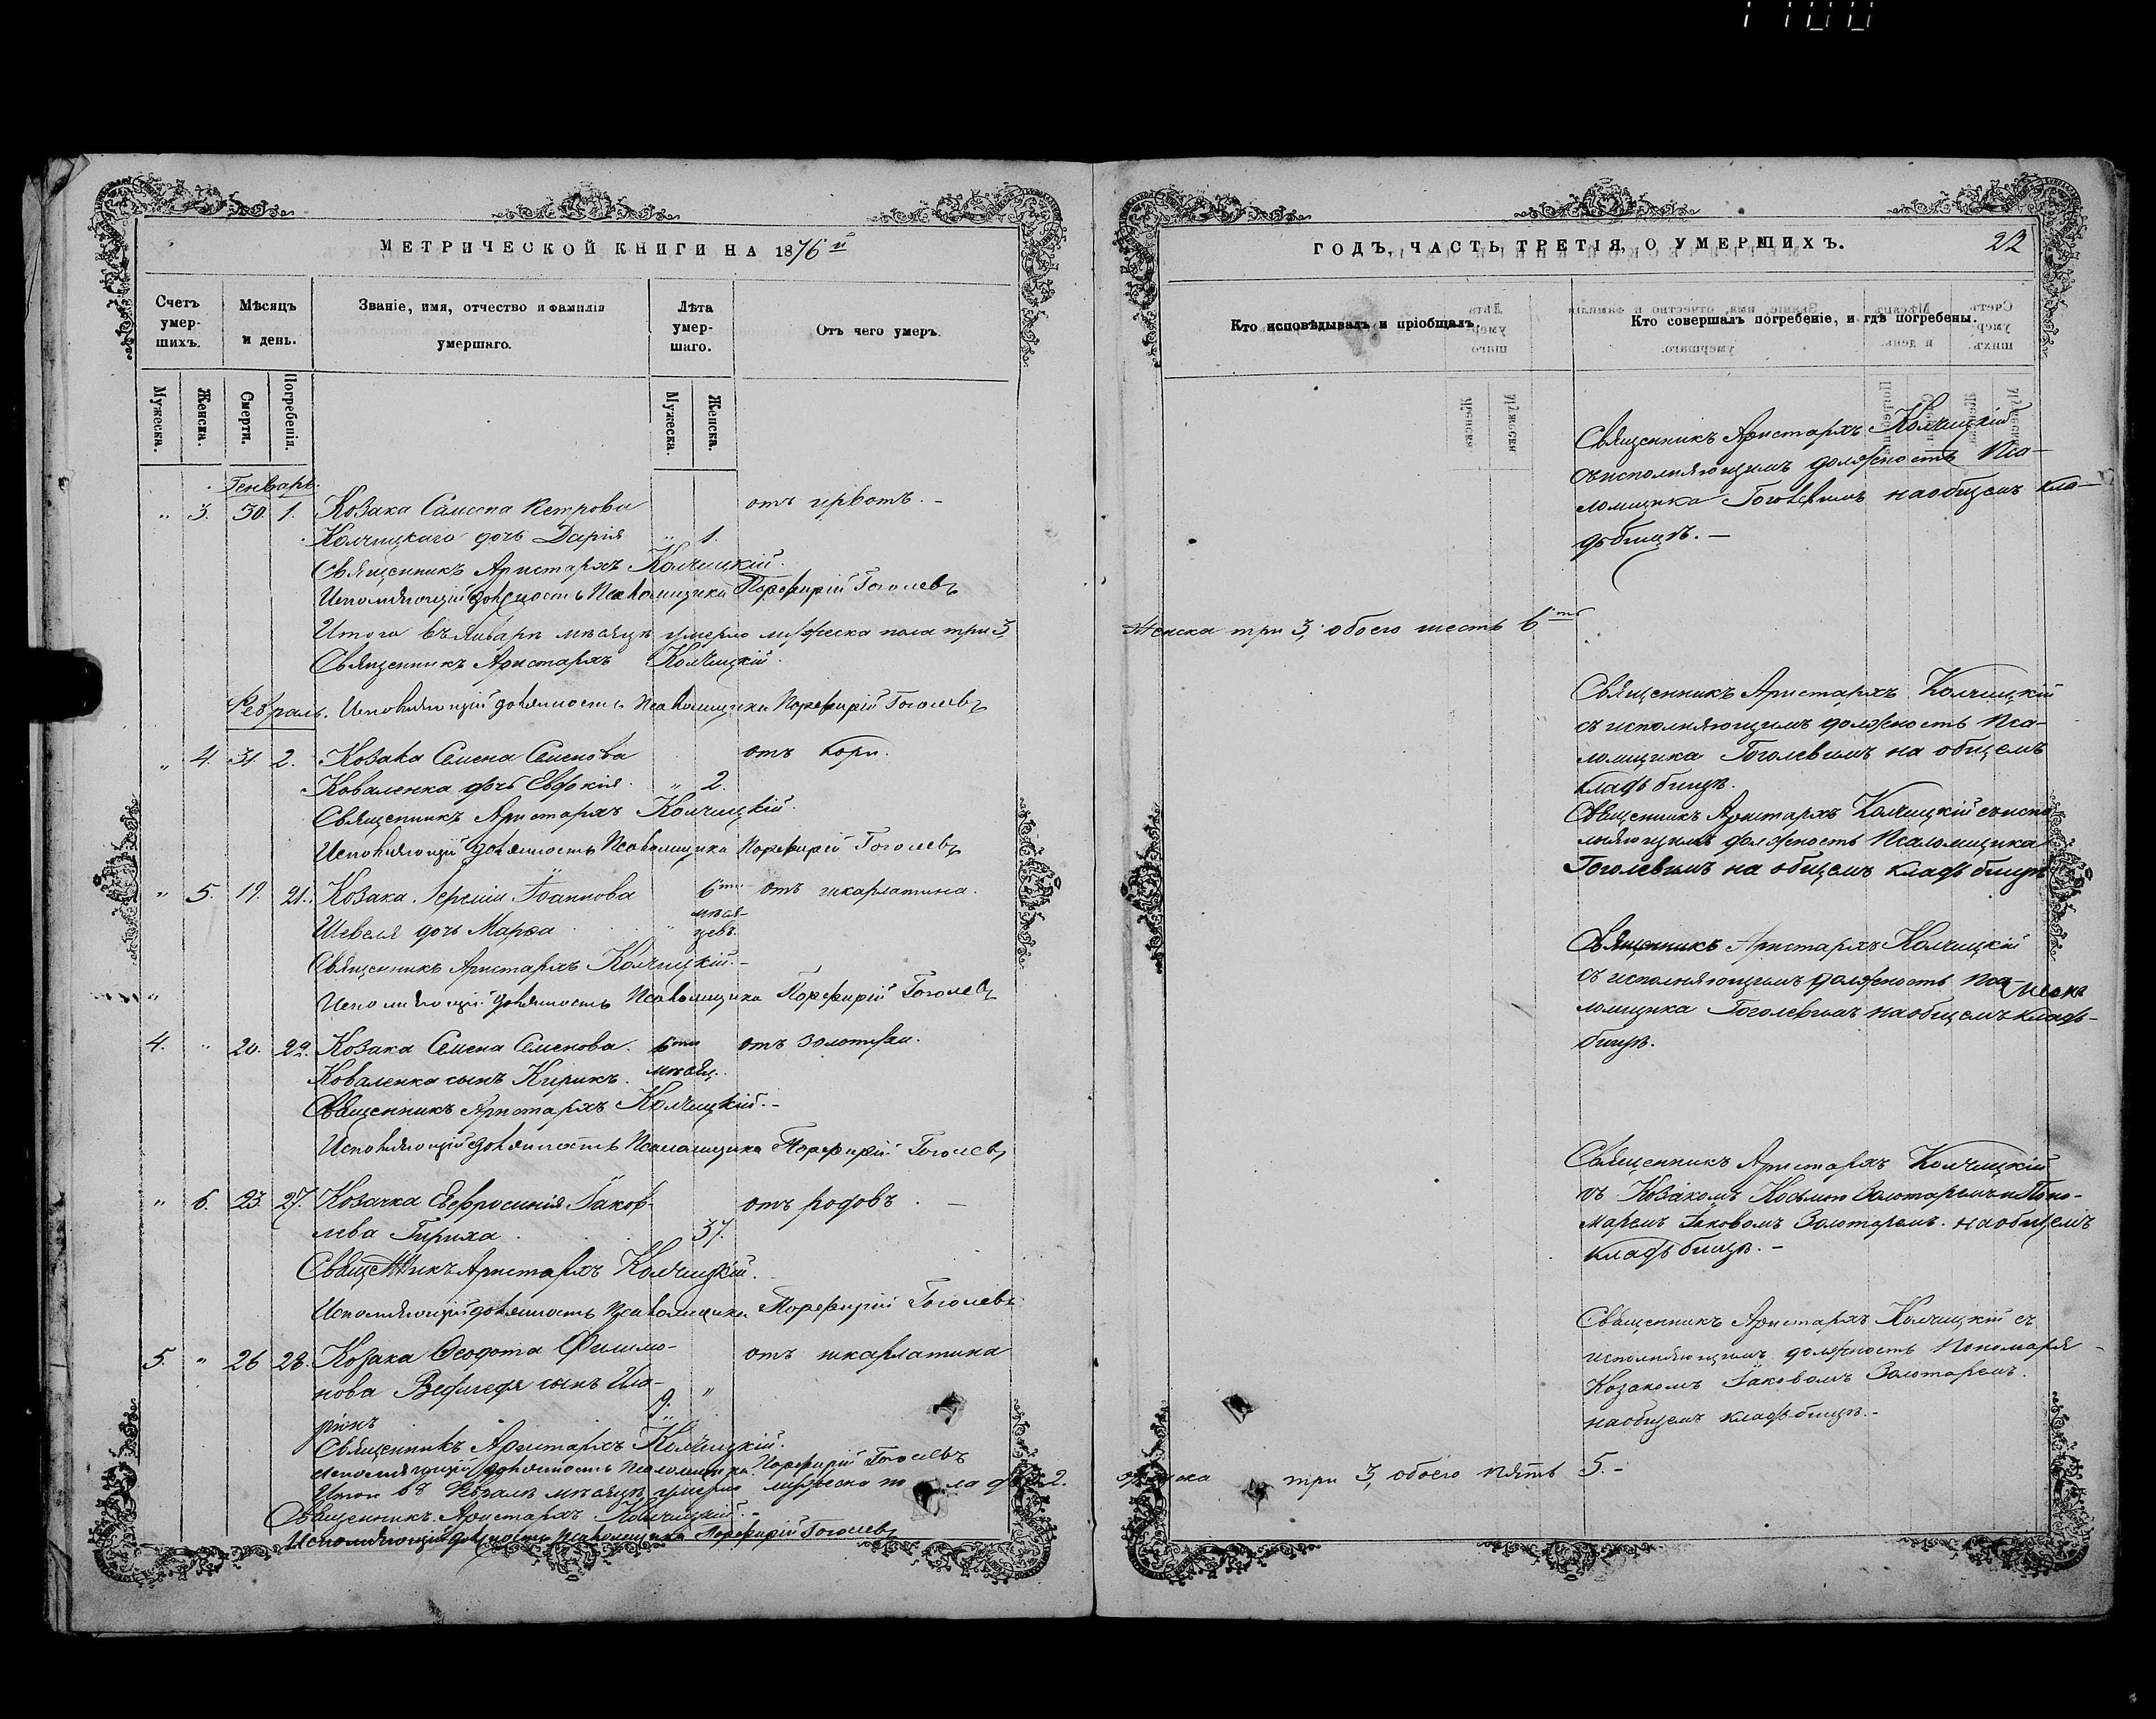 МЕТРИЧЕСКОЙ КНИГИ НА 1876й
Счетъ умер- шихъ.
Мѣсяцъ и день.
Званіе, имя, отчество и фамилія умершаго.
Лѣта умер- шаго.
Отъ чего умеръ.
Мужеска.
Женска.
Смерти.
Погребенія.
Мужеска.
Женска.
Генварь.
„ 3. 30. 1. Козака Самсона Петрова отъ
Колчицкаго дочь Дарія „ 1.
Священникъ Аристархъ Колчицкій.
Исполняющій должность Псаломщика Порфирій Гоголевъ
Итого въ Январѣ мѣсяцѣ умерло мужеска пола три 3
Священникъ Аристархъ Колчицкій.
Февраль. Исполняющій должность Псаломщика Порфирій Гоголевъ
„ 4. 31 2. Козака Семена Семенова отъ кори.
Коваленка дочь Евдокія. „ 2.
Священникъ Аристархъ Колчицкій.
Исполняющій должность Псаломщика Порфирій Гоголевъ
„ 5. 19. 21. Козака Іереміи Іоаннова 6ти отъ шкарлатина.
мѣся-
Шевеля дочь Марѳа „ цевъ.
Священникъ Аристархъ Колчицкій.-
„ Исполняющій должность Псаломщика Порфирій Гоголевъ
4. „ 20. 22. Козака Семена Семенова. 6ти отъ золотухи.
Коваленка сынъ Кирикъ. мѣсяц.
Священникъ Аристархъ Колчицкій.-
Исполняющій должность Псаломщика Порфирій Гоголевъ
„ 6. 23. 27. Козачка Евфросинія Іаков- отъ родовъ. -
лева 37.
Священникъ Аристархъ Колчицкій.
Исполняющій должность Псаломщика Порфирій Гоголевъ
5. „ 26 28. Козака Ѳеодота Филимо- отъ шкарлатина
нова сынъ Ила-
ріонъ „
Священникъ Аристархъ Колчицкій.
Исполняющій должность Псаломщика Порфирій Гоголевъ
Итого въ мѣсяцѣ умерло мужеска по ла два 2.
Священникъ Аристархъ Колчицкій.-
Исполняющій должность Псаломщика Порфирій Гоголевъ
ГОДЪ, ЧАСТЬ ТРЕТІЯ, О УМЕРШИХЪ. 22
Кто исповѣдывалъ и пріобщалъ.
Кто совершалъ погребеніе, и гдѣ погребены.
Священникъ Аристархъ Колчицкій
съ исполняющимъ должность Пса-
ломщика Гоголевымъ на общемъ кла-
дбищѣ.-
Женска три 3, обоего шесть 6ть
Священникъ Аристархъ Колчицкій
съ исполняющимъ должность Пса-
ломщика Гоголевымъ на общемъ
кладбищѣ.
Священникъ Аристархъ Колчицкій съ испо
лняющимъ должность Псаломщика
Гоголевымъ на общемъ кладбищѣ
Священникъ Аристархъ Колчицкій
съ исполняющимъ должность Пса
ломщика Гоголевымъ на общемъ клад-
бищѣ.
Священникъ Аристархъ Колчицкій
съ Козакомъ Космою Золотаремъ и Поно-
маремъ Іаковомъ Золотаремъ. на общемъ
кладбищѣ.-
Священникъ Аристархъ Колчицкій съ
исполняющимъ должность Пономаря
Козакомъ Іаковомъ Золотаремъ.
на общемъ кладбищѣ.-
женска три 3, обоего пять 5.-